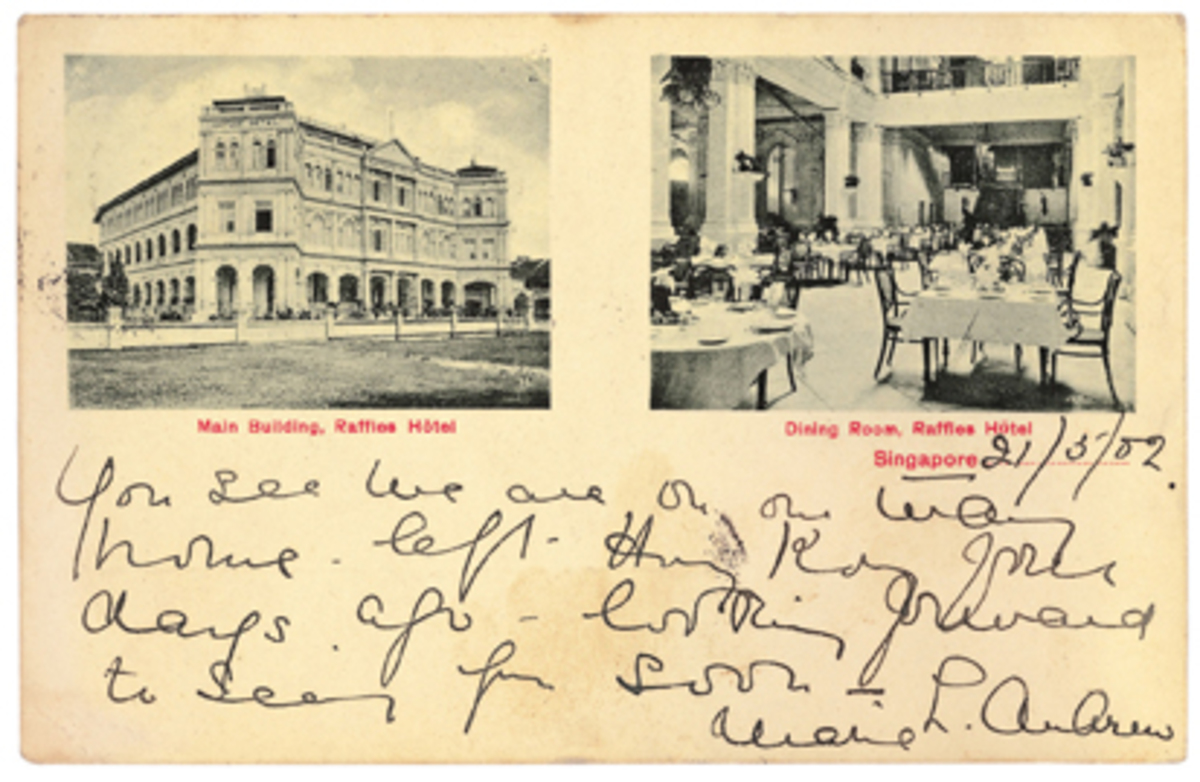 Main Building, Raffles Hôtel
Dining Room, Raffles Hôtel
Singapore 21/5/02.
You see we are on our way
home - left - Hong Kong four
days ago - looking forward
to seeing you soon -
Marie L. Andrew